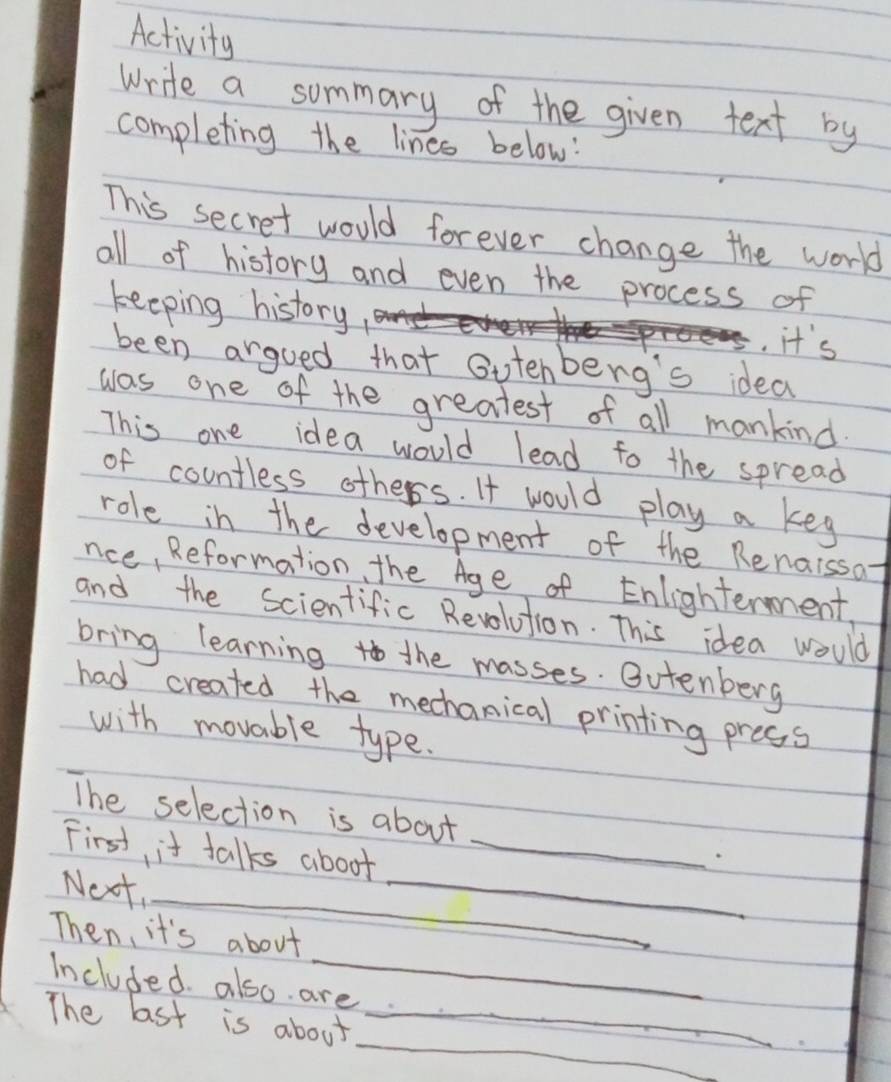 Activity
Write a summary of the given text by
completing the lines below:
This secret would forever change the world
all of history and even the process of
keeping history, and even the proces. it's
been argued that Gutenberg's idea
was one of the greatest of all mankind.
This one idea would lead to the spread
of countless others. It would play a key
role in the development of the Renaissa-
nce, Reformation, the Age of Enlightenment,
and the Scientific Revolution. This idea would
bring learning to the masses. Gutenberg
had created the mechanical printing press
with movable type.
The selection is about ________.
First, it talks about ________
Next, ________
Then, it's about ________
Included. also. are ________.
The last is about ________